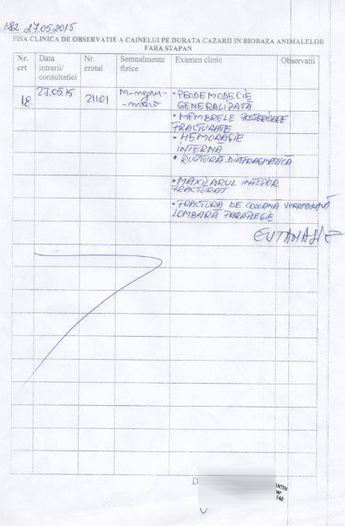 282 27.05.2015
FISA CLINICA DE OBSERVATIE A CAINELUI PE DURATA CAZARII IN BIOBAZA ANIMALELOR
FARA STAPAN
Nr. crt
Data intrarii/ consultatiei
Nr. crotal
Semnalmente fizice
Examen clinic
Observatii
18.
27.05.15
21101
M-negru-
• GENERALIZATĂ
• MEMBRELE POSTERIOARE
FRACTURATE
• HEMORAGIE
INTERNĂ
• RUPTURĂ DIAFRAGMATICĂ
• MAXILARUL INFERIOR
FRACTURAT
• FRACTURĂ DE COLOANĂ VERTEBRALĂ
LOMBARĂ PARAPLEGIE
EUTANASIE